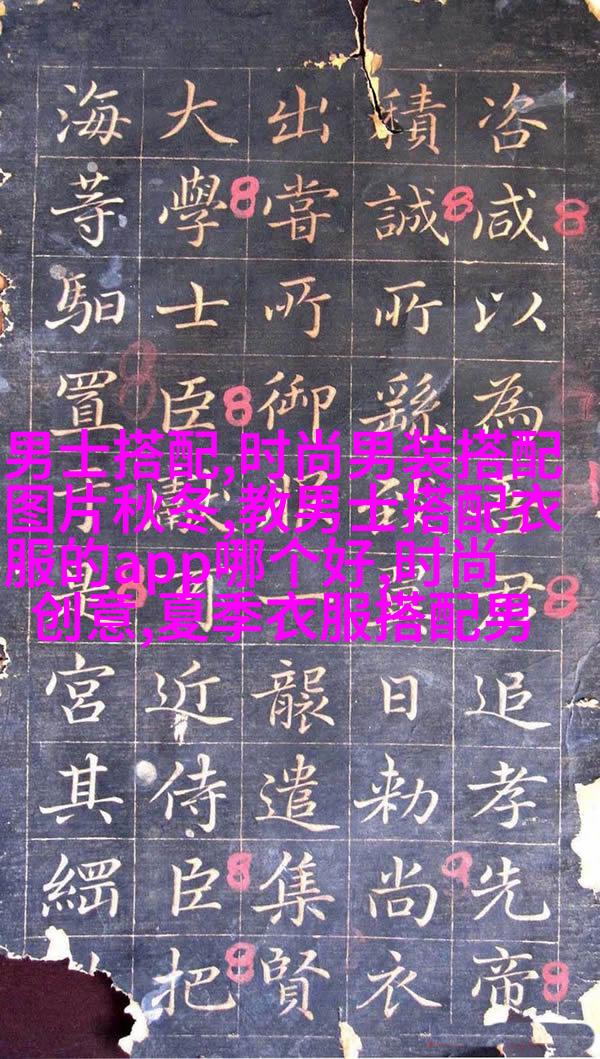 咨咸以為追孝先帝
積誠所繇到日勑尚衣
出嘗所御服一襲遣集賢
大學士臣近侍臣把
海等馹置宮其
男士搭配,时尚男装搭配
图片秋冬,教男士搭配衣
服的app哪个好,时尚
创意,夏季衣服搭配男